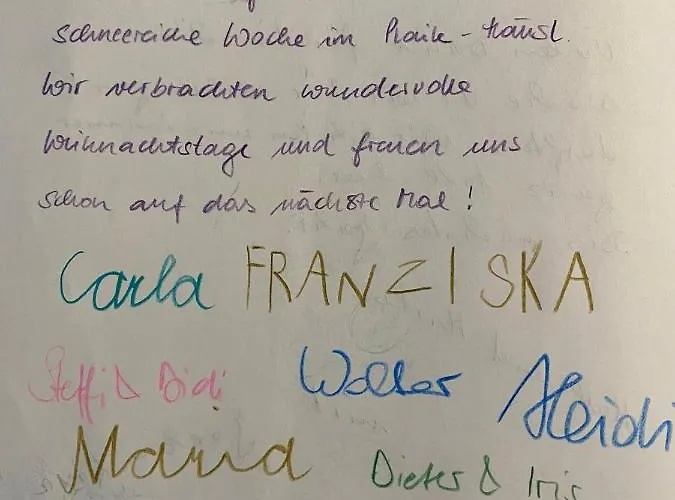 schneereiche Woche im Haik-Häusl.
Wir verbrachten wundervolle
Weihnachtstage und freuen uns
schon auf das nächste Mal!
Carla FRANZISKA
Steffi & Didi Walter Heidi
Maria Dieter & Iris